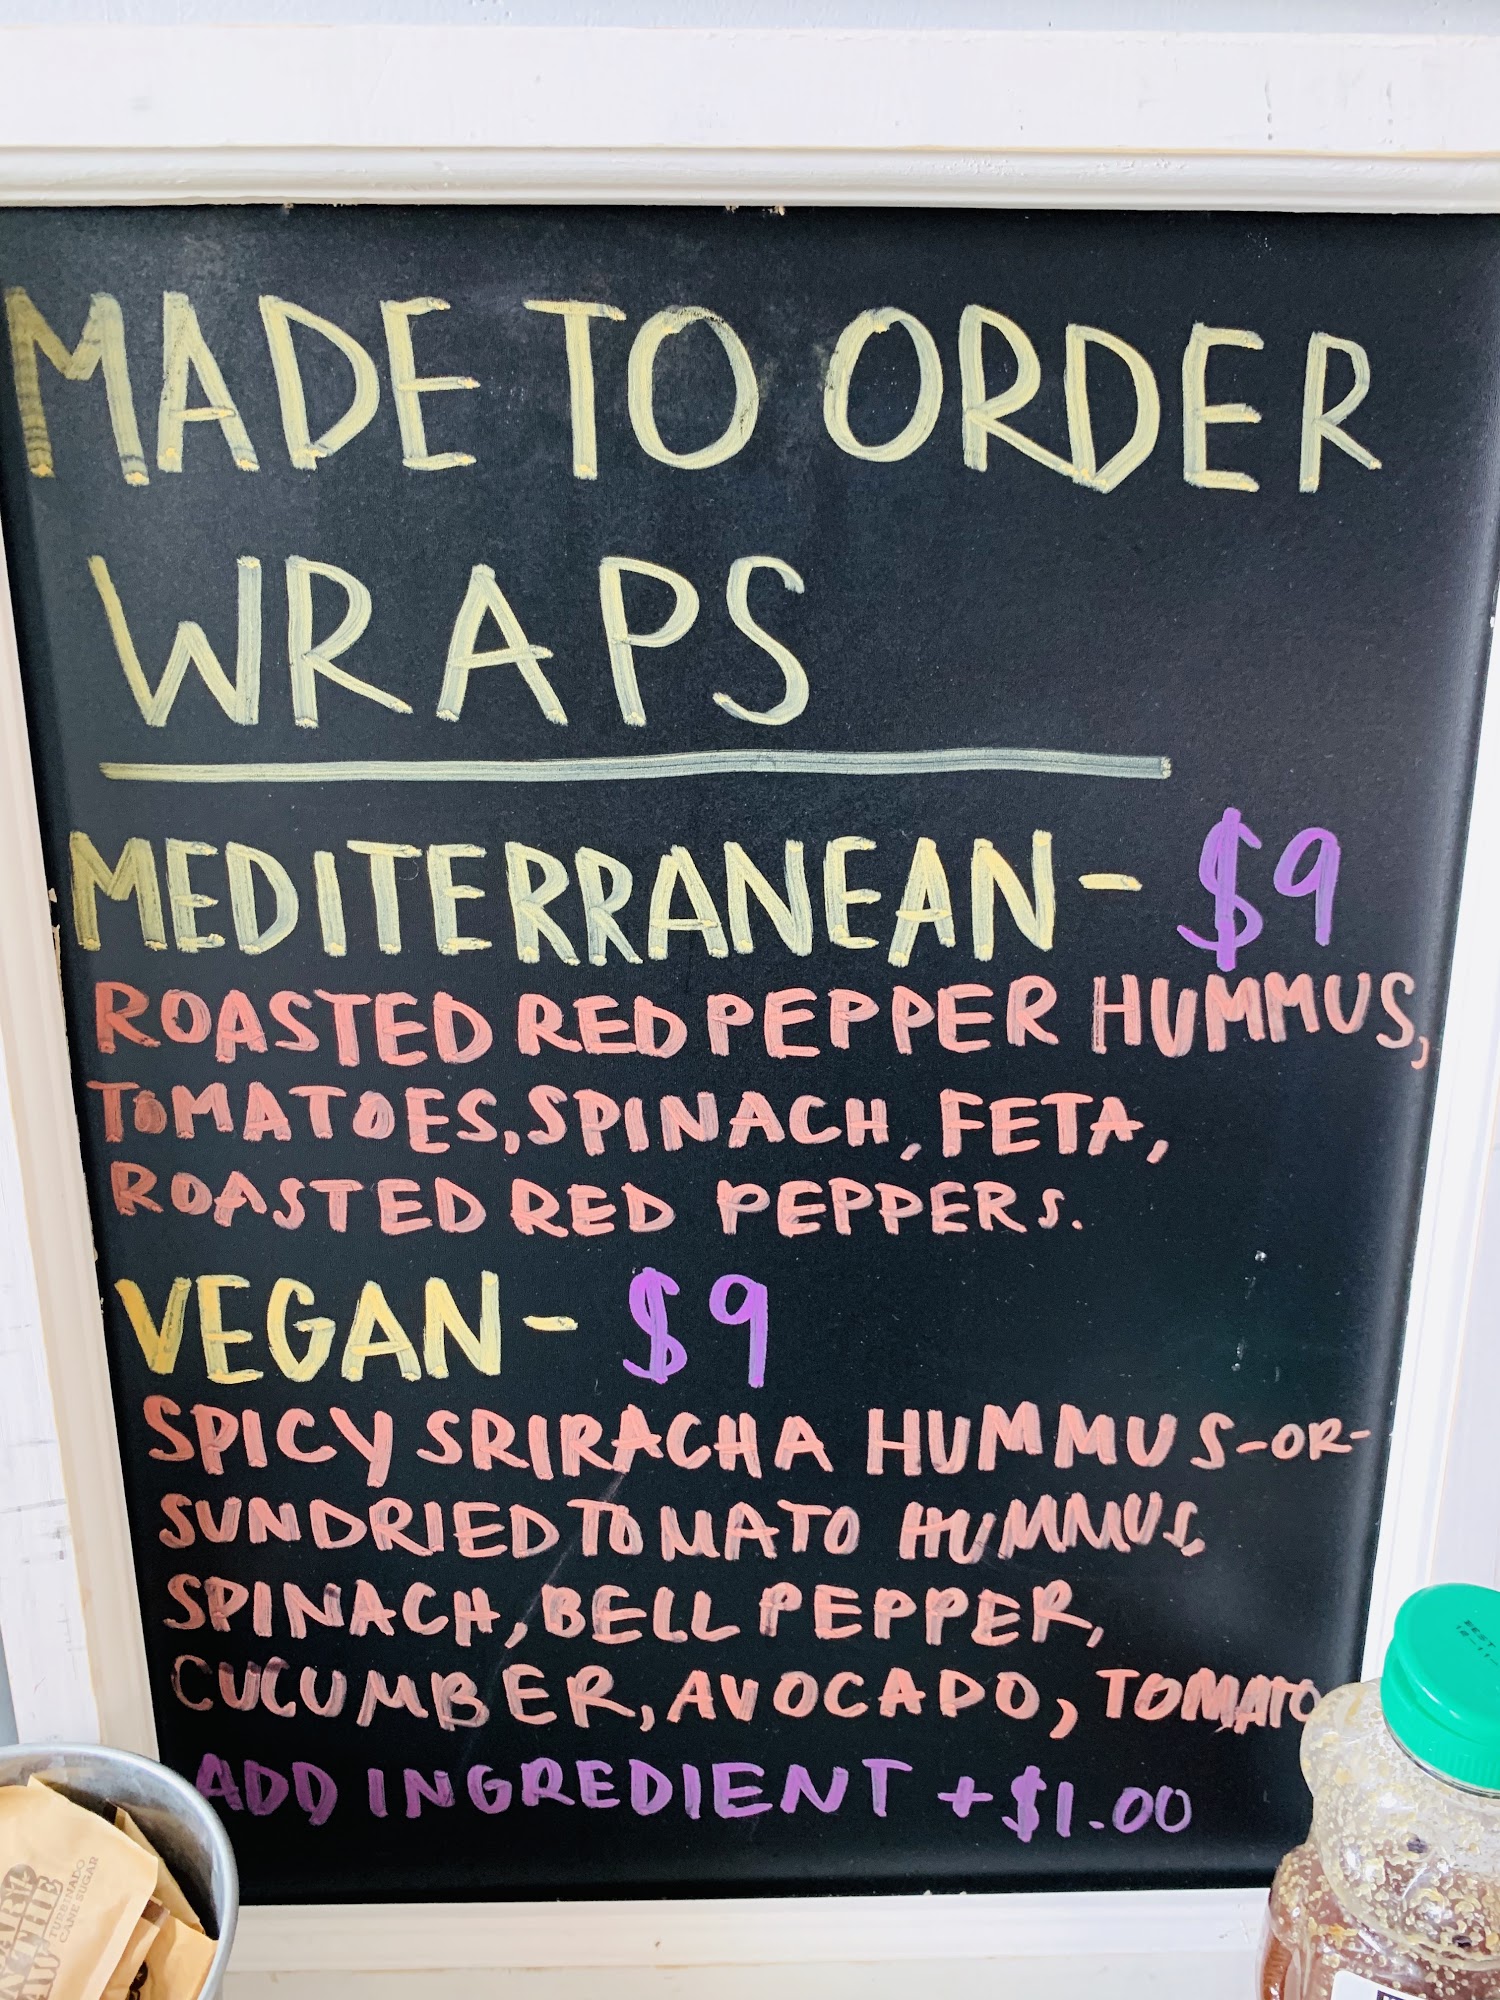 MADE TO ORDER
WRAPS
MEDITERRANEAN- $9
ROASTED RED PEPPER HUMMUS,
TOMATOES, SPINACH, FETA,
ROASTED RED PEPPERS.
VEGAN- $9
SPICY SRIRACHA HUMMUS-OR-
SUNDRIED TOMATO HUMMUS,
SPINACH, BELL PEPPER,
CUCUMBER, AVOCADO, TOMATO
ADD INGREDIENT +$1.00
TURBINADO
CANE SUGAR